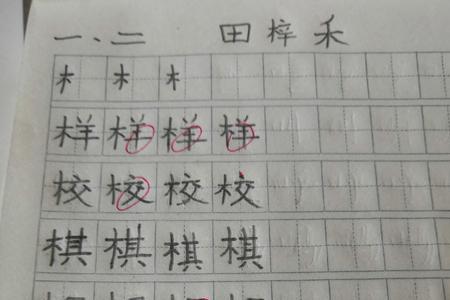 一、二 田梓禾
木 木 木
样 样 样 样
校 校 校 校
棋 棋 棋 棋